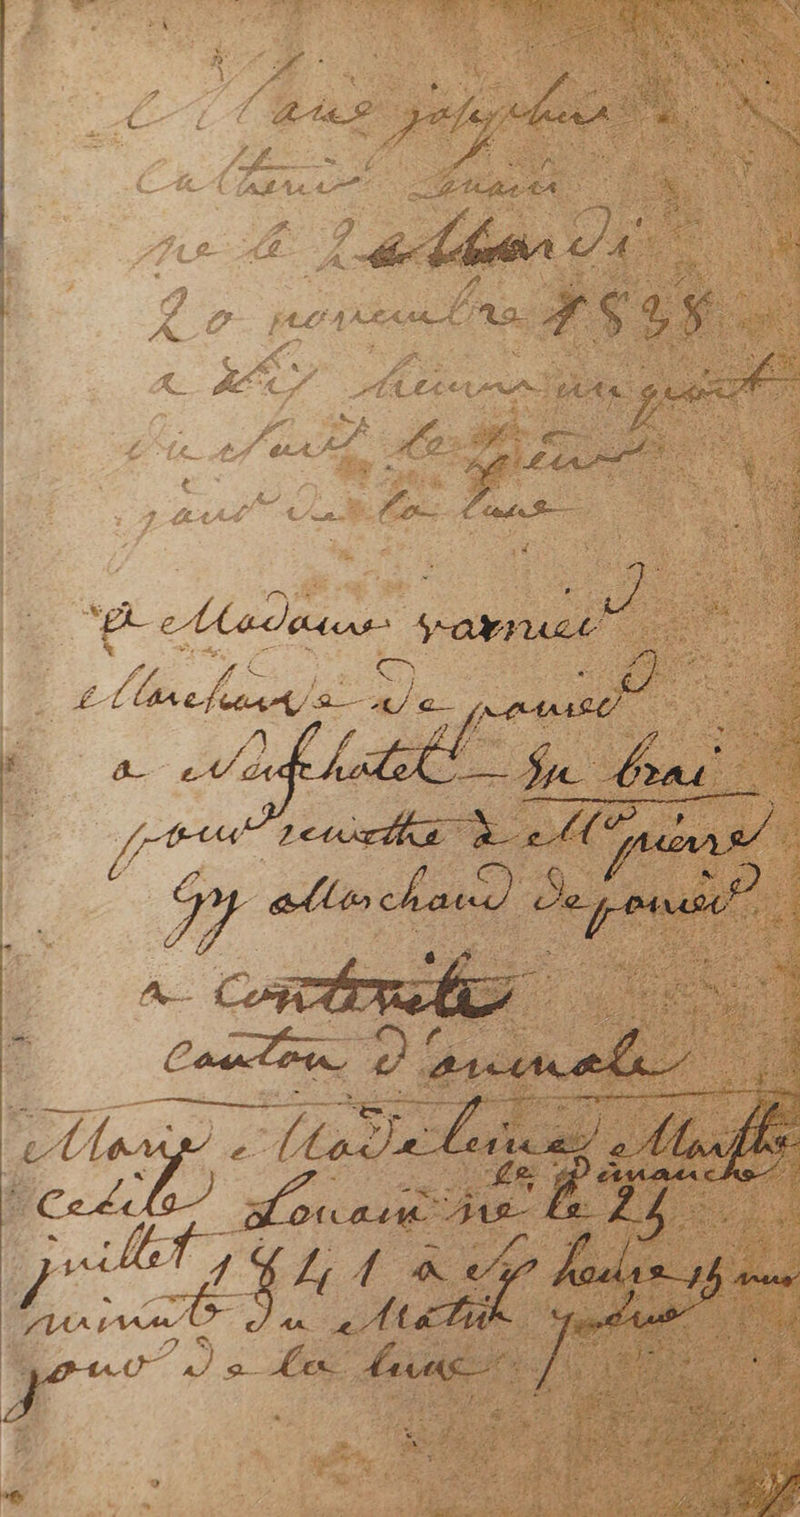 Marie josephine
Catherine Louain
ne le 2 
20 novembre 1838
a heures un quart
du soir le
jour de la lune
a Madame varnier
Marchande de panier
a Neufchatel – En brai
pour remettre à Mr pierre
Gy Marchand de panier
a
Canton d'aumale
Marie Madeleine Marthe
le Dimanche
Cecile Louain né le 25
juillet 1841 a heures
minut du Matin
jour de la lune